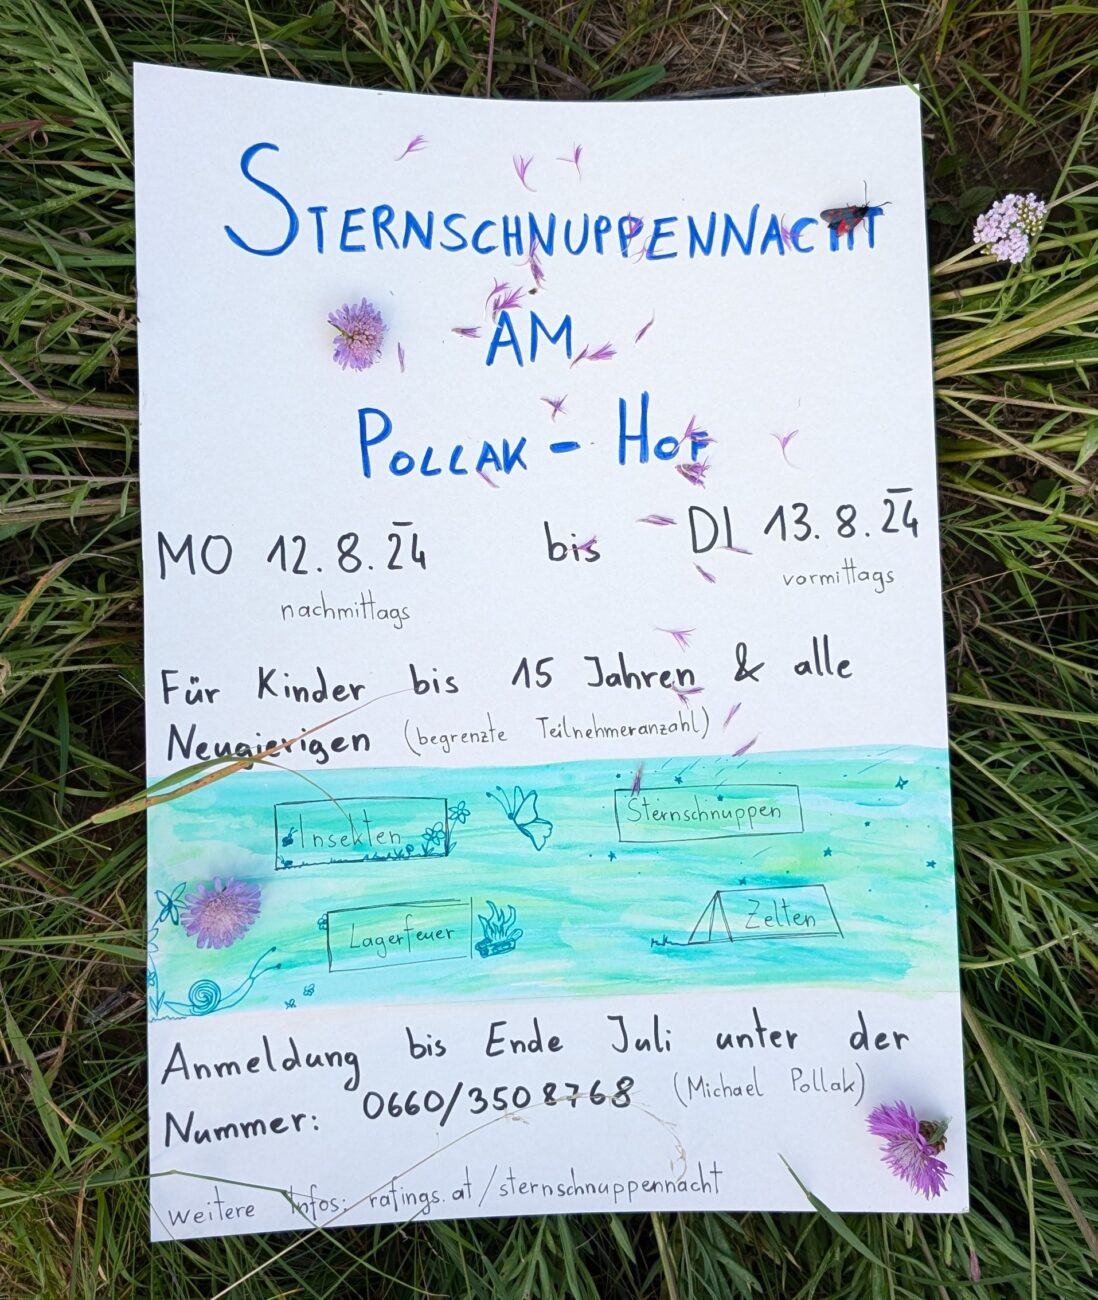 STERNSCHNUPPENNACHT
AM
POLLAK - HOF
MO 12.8.24 bis DI 13.8.24
nachmittags vormittags
Für Kinder bis 15 Jahren & alle
Neugierigen (begrenzte Teilnehmeranzahl)
Insekten Sternschnuppen
Lagerfeuer Zelten
Anmeldung bis Ende Juli unter der
Nummer: 0660/350 8768 (Michael Pollak)
weitere Infos: ratings.at/sternschnuppennacht